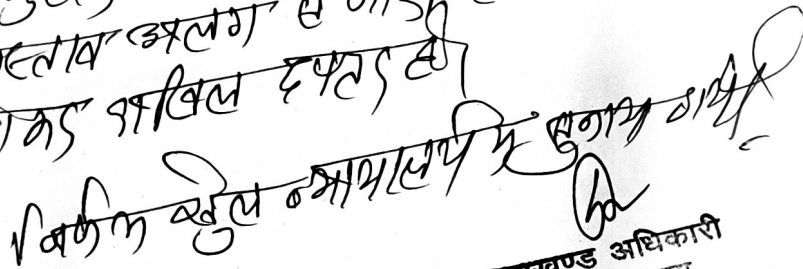 स्ताव अलग से
दाखिल दफ्तर हो।
निर्णय खुले न्यायालय में सुनाया गया।
खण्ड अधिकारी